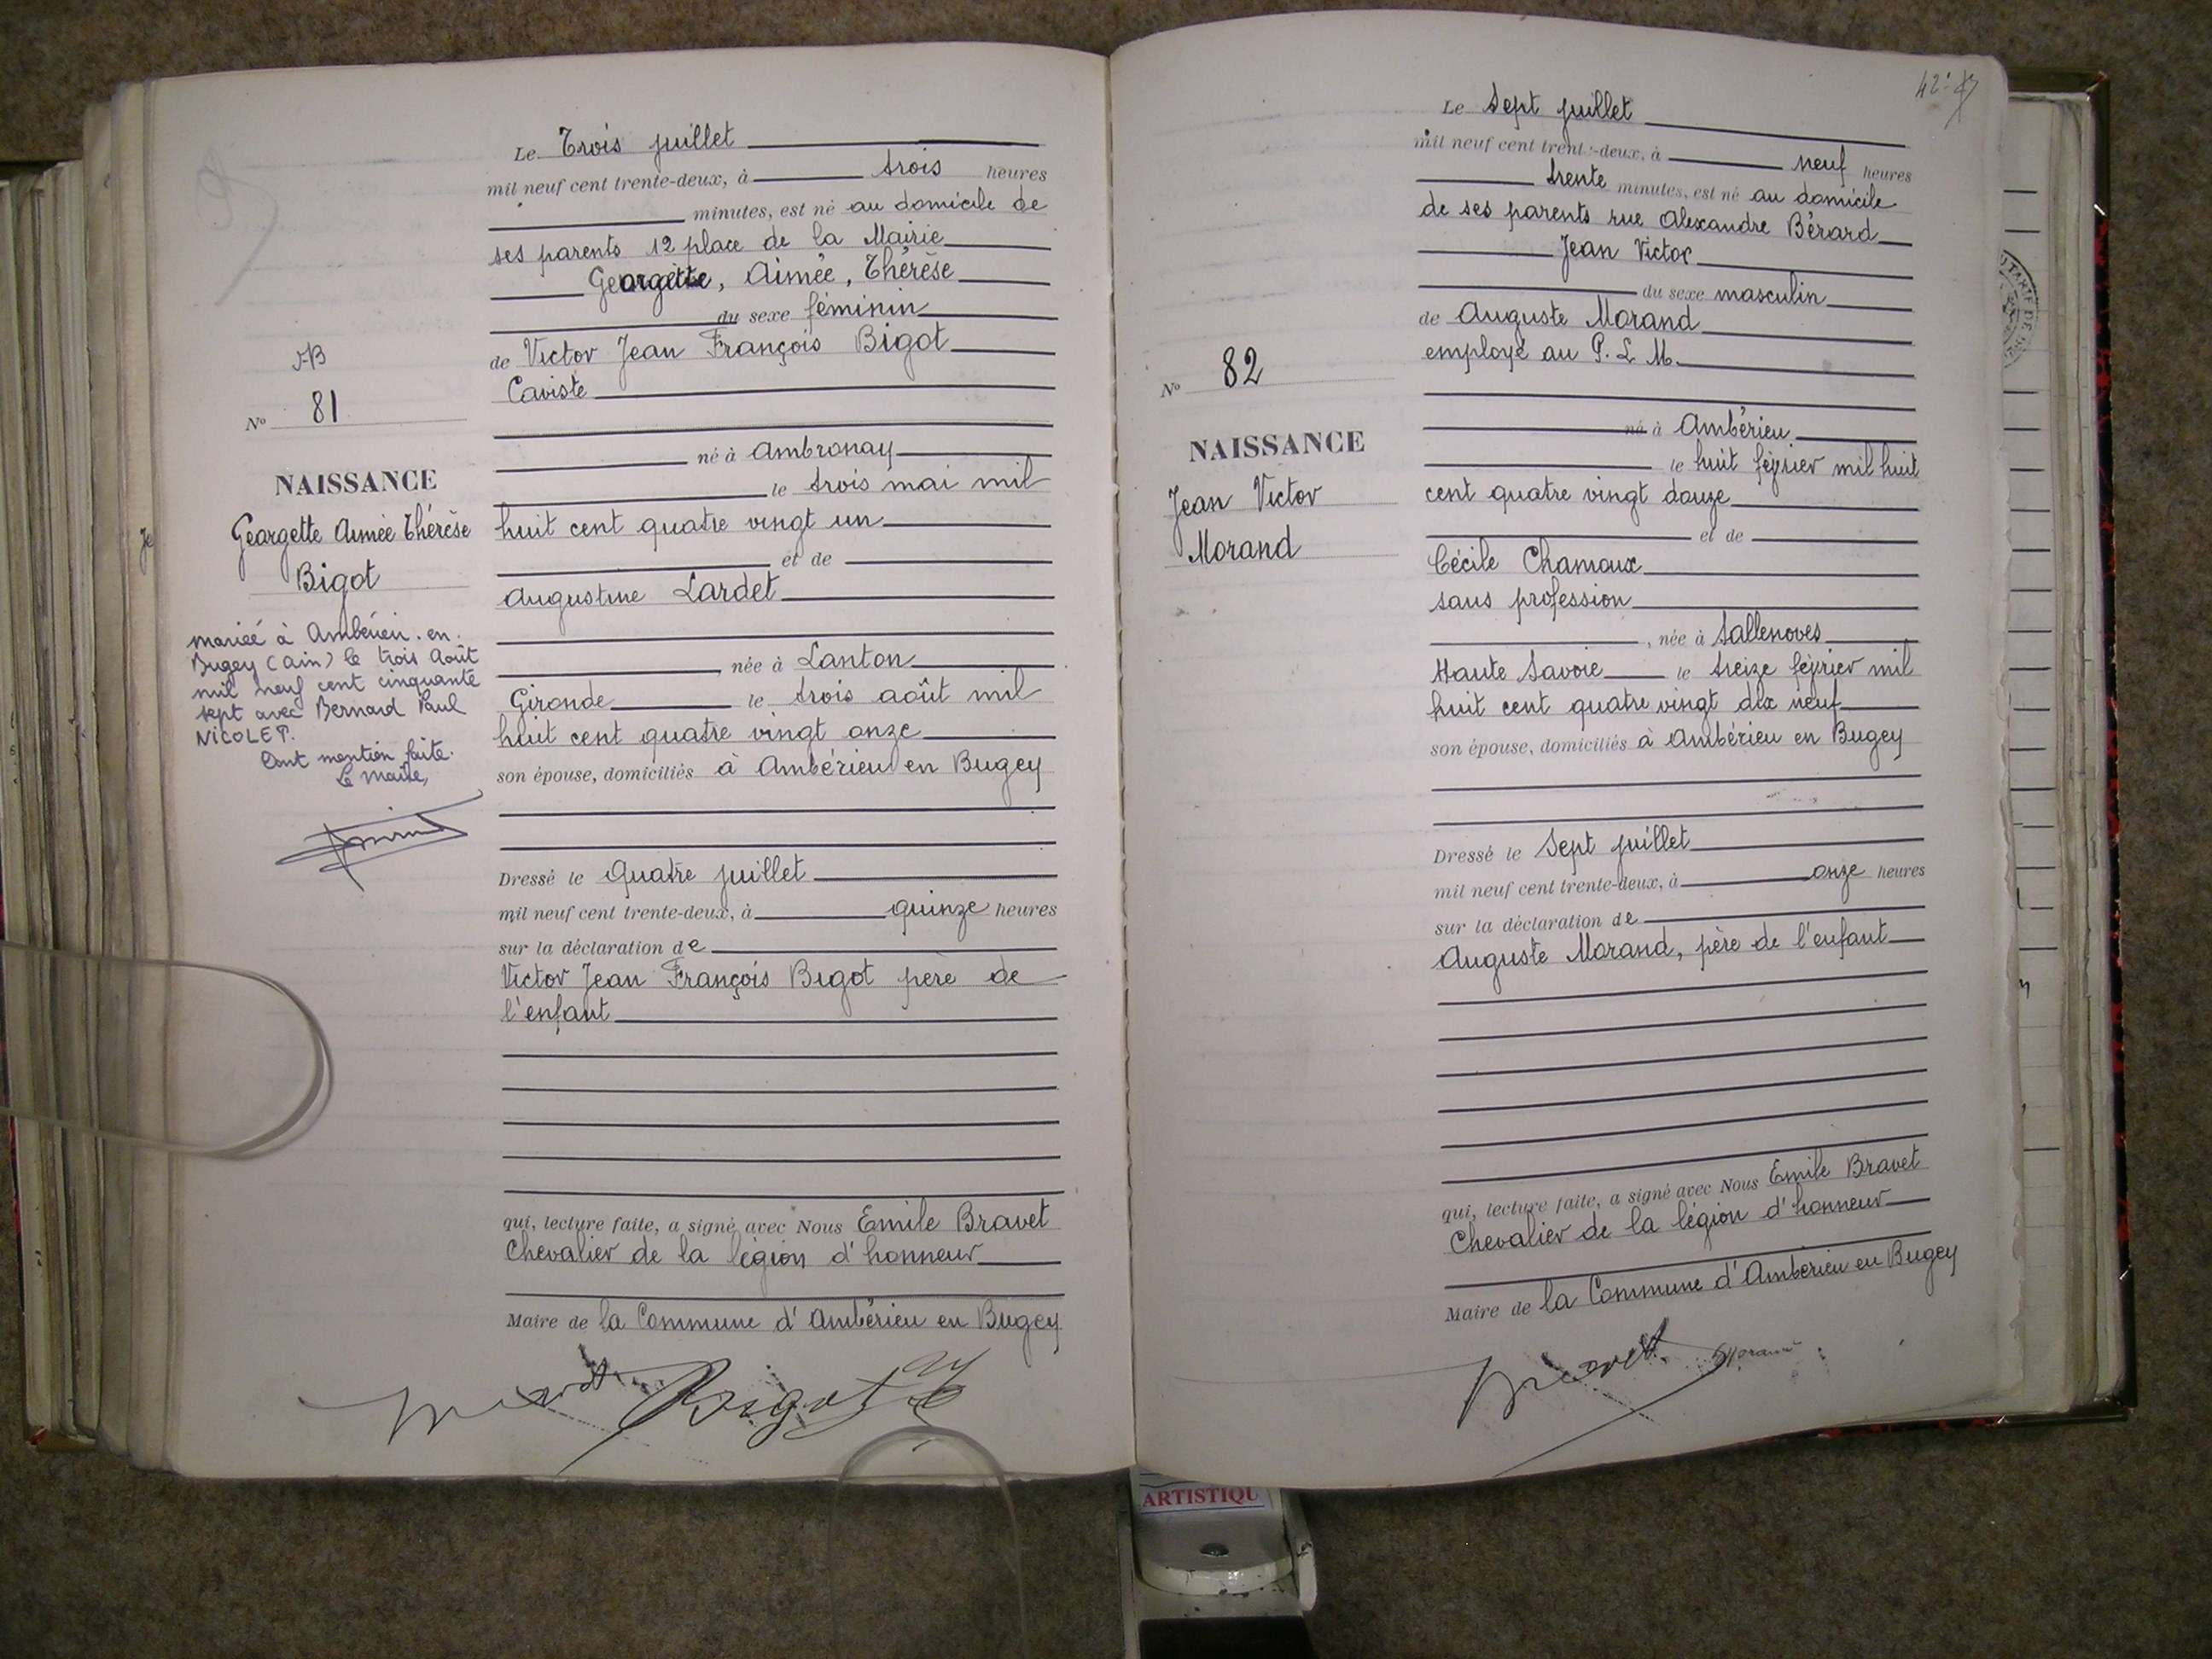 Le Trois juillet
mil neuf cent trente-deux, à trois heures
minutes, est né au domicile de
ses parents 12 place de la Mairie
Georgette, Aimée, Thérèse
du sexe féminin
de Victor Jean François Bigot
Caviste
né à Ambronay
le trois mai mil
huit cent quatre vingt un
et de
Augustine Lardet
née à Lanton
Gironde le trois août mil
huit cent quatre vingt onze
son épouse, domiciliés à Ambérieu en Bugey
Dressé le Quatre juillet
mil neuf cent trente-deux, à quinze heures
sur la déclaration de
Victor Jean François Bigot père de
l'enfant
qui, lecture faite, a signé avec Nous Emile Bravet
Chevalier de la légion d'honneur
Maire de la Commune d'Ambérieu en Bugey
Bigot
No 81
NAISSANCE
Georgette Aimée Thérèse
Bigot
mariée à Ambérieu-en-
Bugey (Ain) le trois Août
mil neuf cent cinquante
sept avec Bernard Paul
NICOLET.
Dont mention faite.
Le Maire,
42
Le Sept juillet
mil neuf cent trente-deux, à neuf heures
trente minutes, est né au domicile
de ses parents rue Alexandre Bérard
Jean Victor
du sexe masculin
de Auguste Morand
employé au P. L. M.
né à Ambérieu
le huit février mil huit
cent quatre vingt douze
et de
Cécile Chamoux
sans profession
, née à Sallenoves
Haute Savoie le treize février mil
huit cent quatre vingt dix neuf
son épouse, domiciliés à Ambérieu en Bugey
Dressé le Sept juillet
mil neuf cent trente-deux, à onze heures
sur la déclaration de
Auguste Morand, père de l'enfant
qui, lecture faite, a signé avec Nous Emile Bravet
Chevalier de la légion d'honneur
Maire de la Commune d'Ambérieu en Bugey
Bravet
No 82
NAISSANCE
Jean Victor
Morand
ARTISTIQU